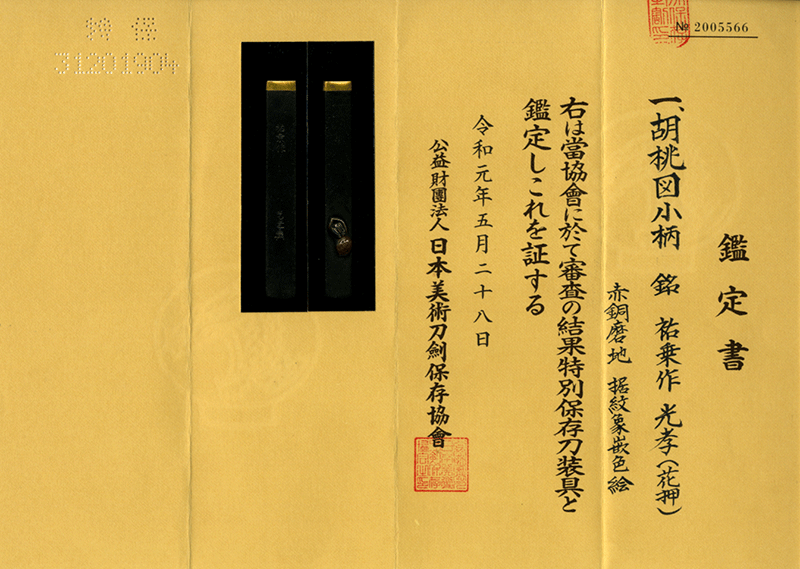 鑑定書
№ 2005566
一、胡桃図小柄 銘 祐乗作 光孝(花押)
赤銅磨地 据紋象嵌色絵
右は當協會に於て審査の結果特別保存刀装具と
鑑定しこれを証する
令和元年五月二十八日
公益財團法人 日本美術刀劍保存協會
特保
31201904